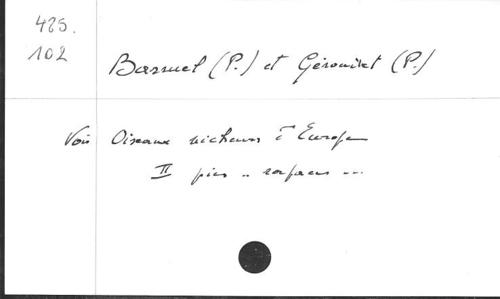 485.
102
Barruel (P.) et Géroudet (P.)
Voir Oiseaux nicheurs d'Europe
II pics .. rapaces ...